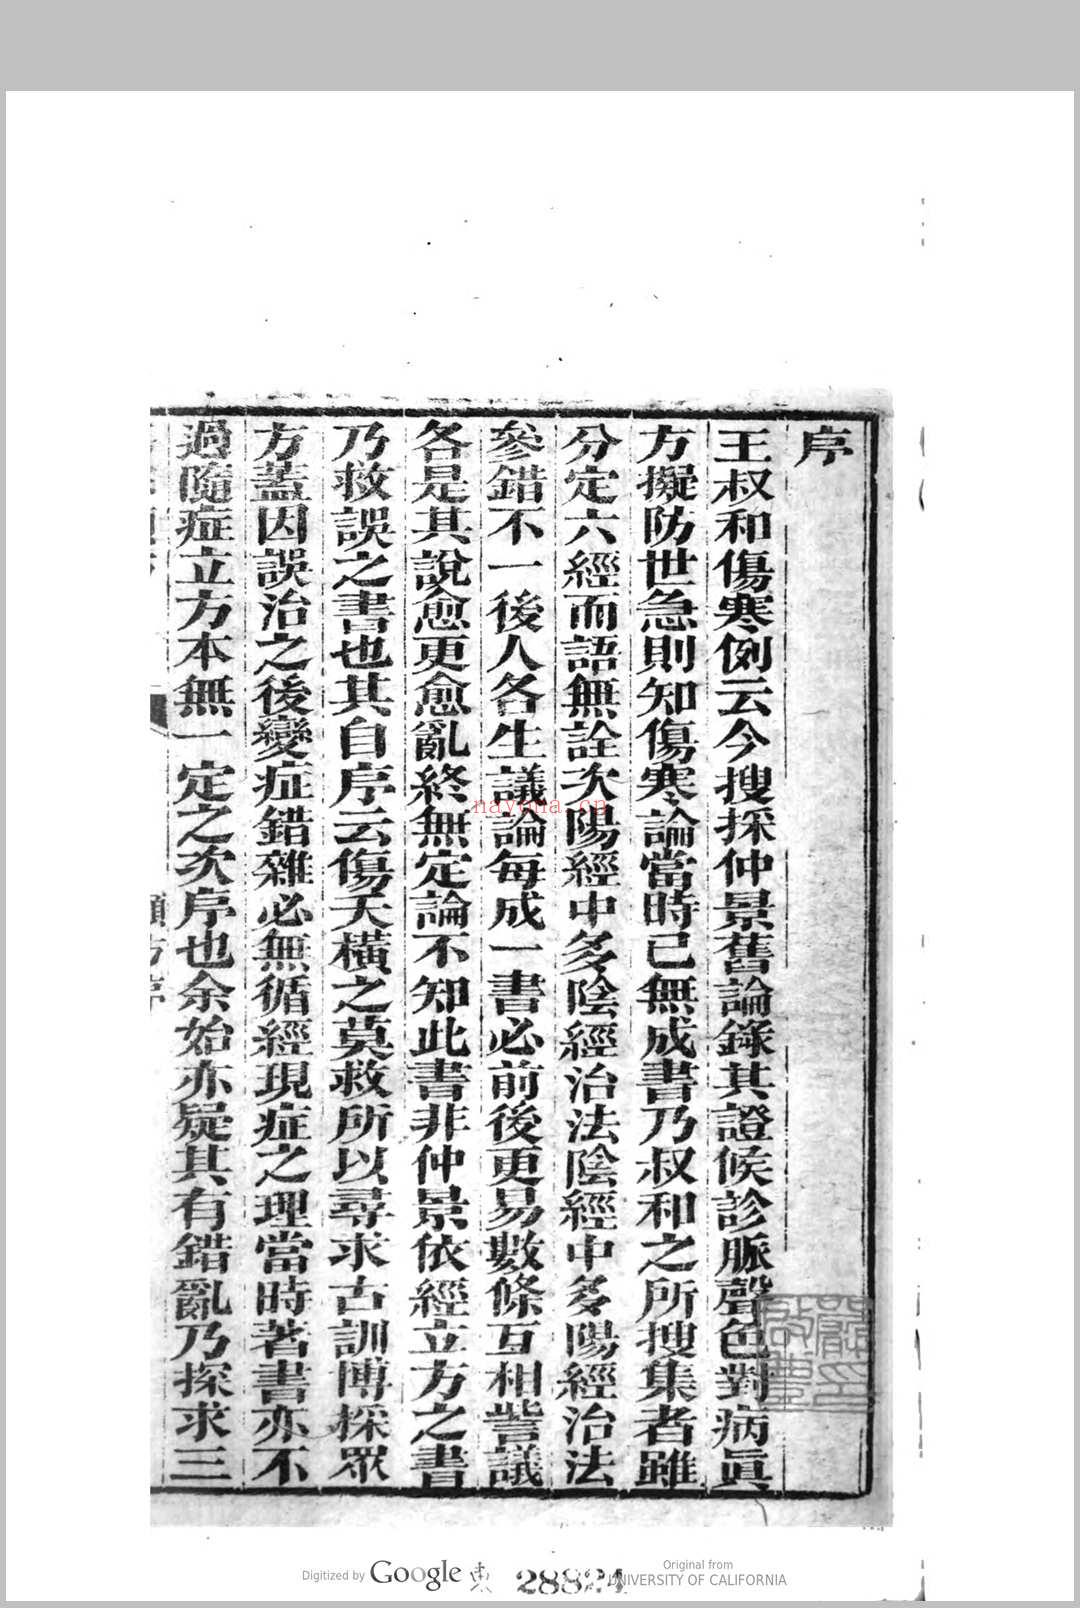 序
王叔和傷寒例云今搜採仲景舊論錄其證候診脈聲色對病眞
方擬防世急則知傷寒論當時已無成書乃叔和之所搜集者雖
分定六經而語無詮次陽經中多陰經治法陰經中多陽經治法
參錯不一後人各生議論每成一書必前後更易數條互相訾議
各是其說愈更愈亂終無定論不知此書非仲景依經立方之書
乃救誤之書也其自序云傷夭橫之莫救所以尋求古訓博採眾
方蓋因誤治之後變症錯雜必無循經現症之理當時著書亦不
過隨症立方本無一定之次序也余始亦疑其有錯亂乃探求三
nayona.cn
Digitized by Google
東 28824
Original from
UNIVERSITY OF CALIFORNIA